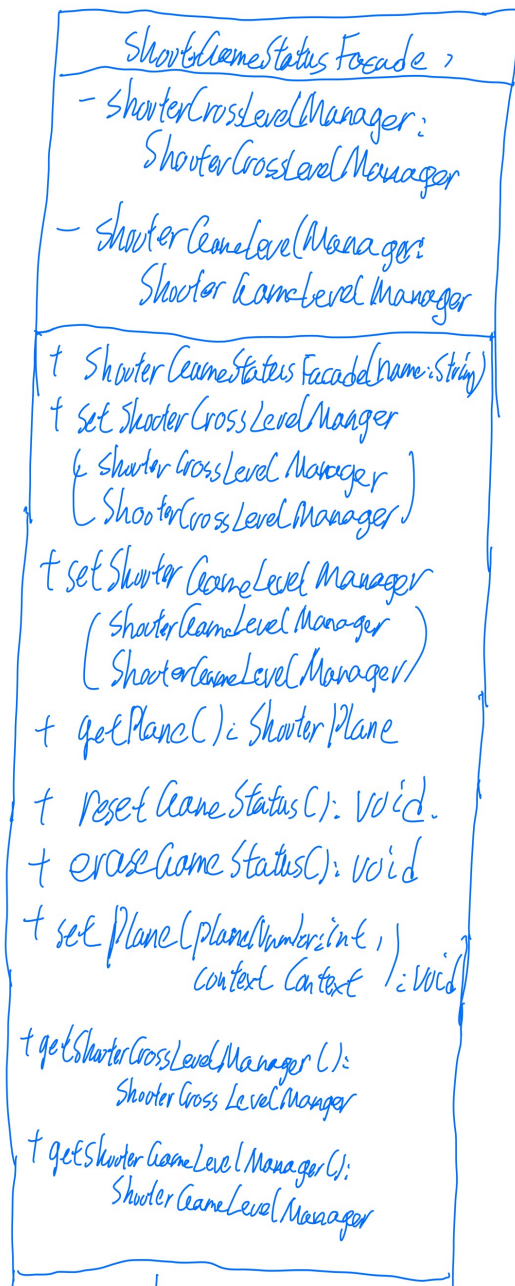 ShooterGameStatusFacade
- shooterCrossLevelManager:
ShooterCrossLevelManager
- shooterGameLevelManager:
ShooterGameLevelManager
+ ShooterGameStatusFacade(name:String)
+ setShooterCrossLevelManger
( shooterCrossLevelManager
ShooterCrossLevelManager)
+ setShooterGameLevelManager
( shooterGameLevelManager
ShooterGameLevelManager)
+ getPlane(): ShooterPlane
+ resetGameStatus(): void.
+ eraseGameStatus(): void
+ setPlane(planeNumber:int,
context Context ): void
+ getShooterCrossLevelManager():
ShooterCrossLevelManger
+ getShooterGameLevelManager():
ShooterGameLevelManager